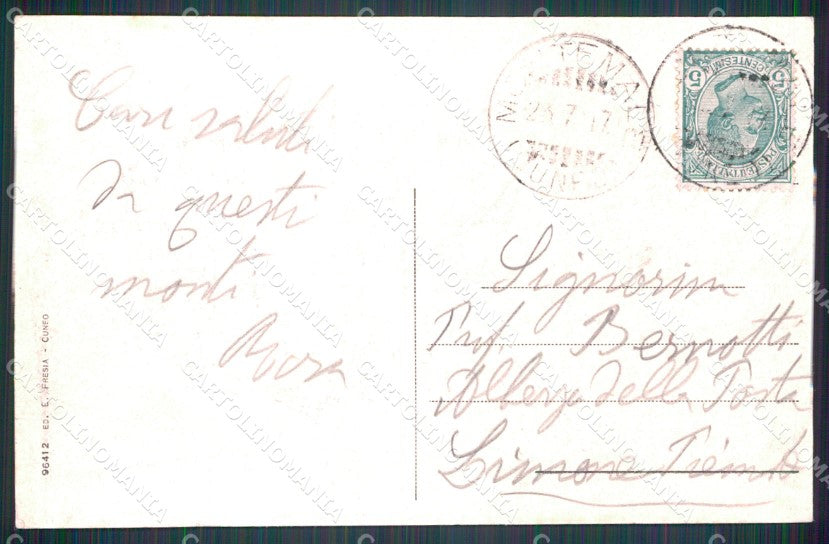 Cari saluti
da questi
monti
Rosa
96412 ED. E. FRESIA - CUNEO
MONTEMALE
23.7.17
(CUNEO)
POSTE ITALIANE
CENTESIMI 5
Signorina
Prof. Bernotti
Albergo della Posta
Limone Piemonte
CARTOLINOMANIA